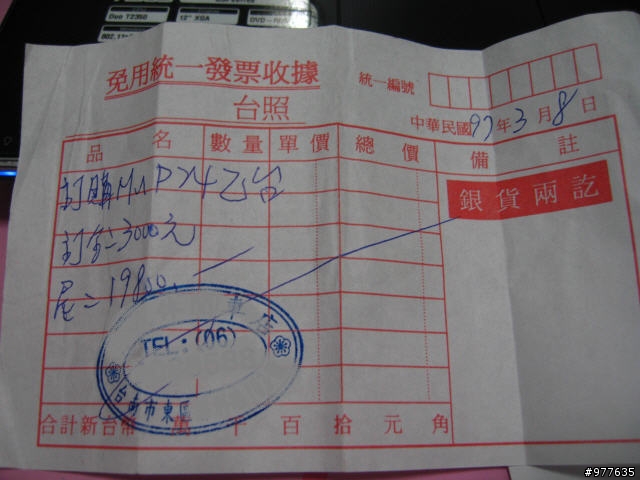 Duo T2350
12" XGA
DVD-RW
802.11
免用統一發票收據
台照
統一編號
中華民國97年3月8日
品名 數量 單價 總價 備註
訂購 台
訂金=3000元
尾=19800.
銀貨兩訖
車店
TEL:(06)
台南市東區
合計新台幣 萬 千 百 拾 元 角
#977635